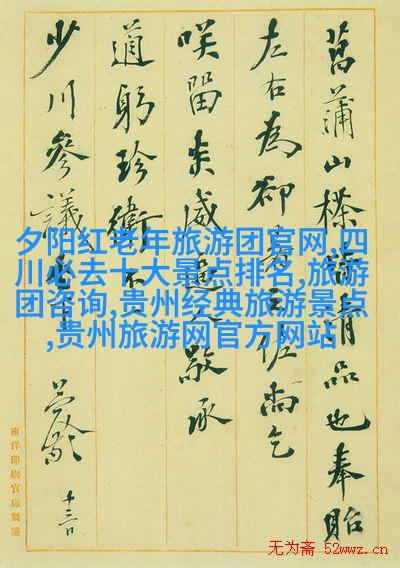 菖蒲山楂皆清品也奉貽
左右為卻暑之佐尚乞
咲留炎威人敬承
道躬珍衛不
少川參議
敬 十三日
夕阳红老年旅游团官网,四
川必去十大景点排名,旅游
团咨询,贵州经典旅游景点
,贵州旅游网官方网站
南洋印刷官廠製箋
无为斋 52wwz.cn